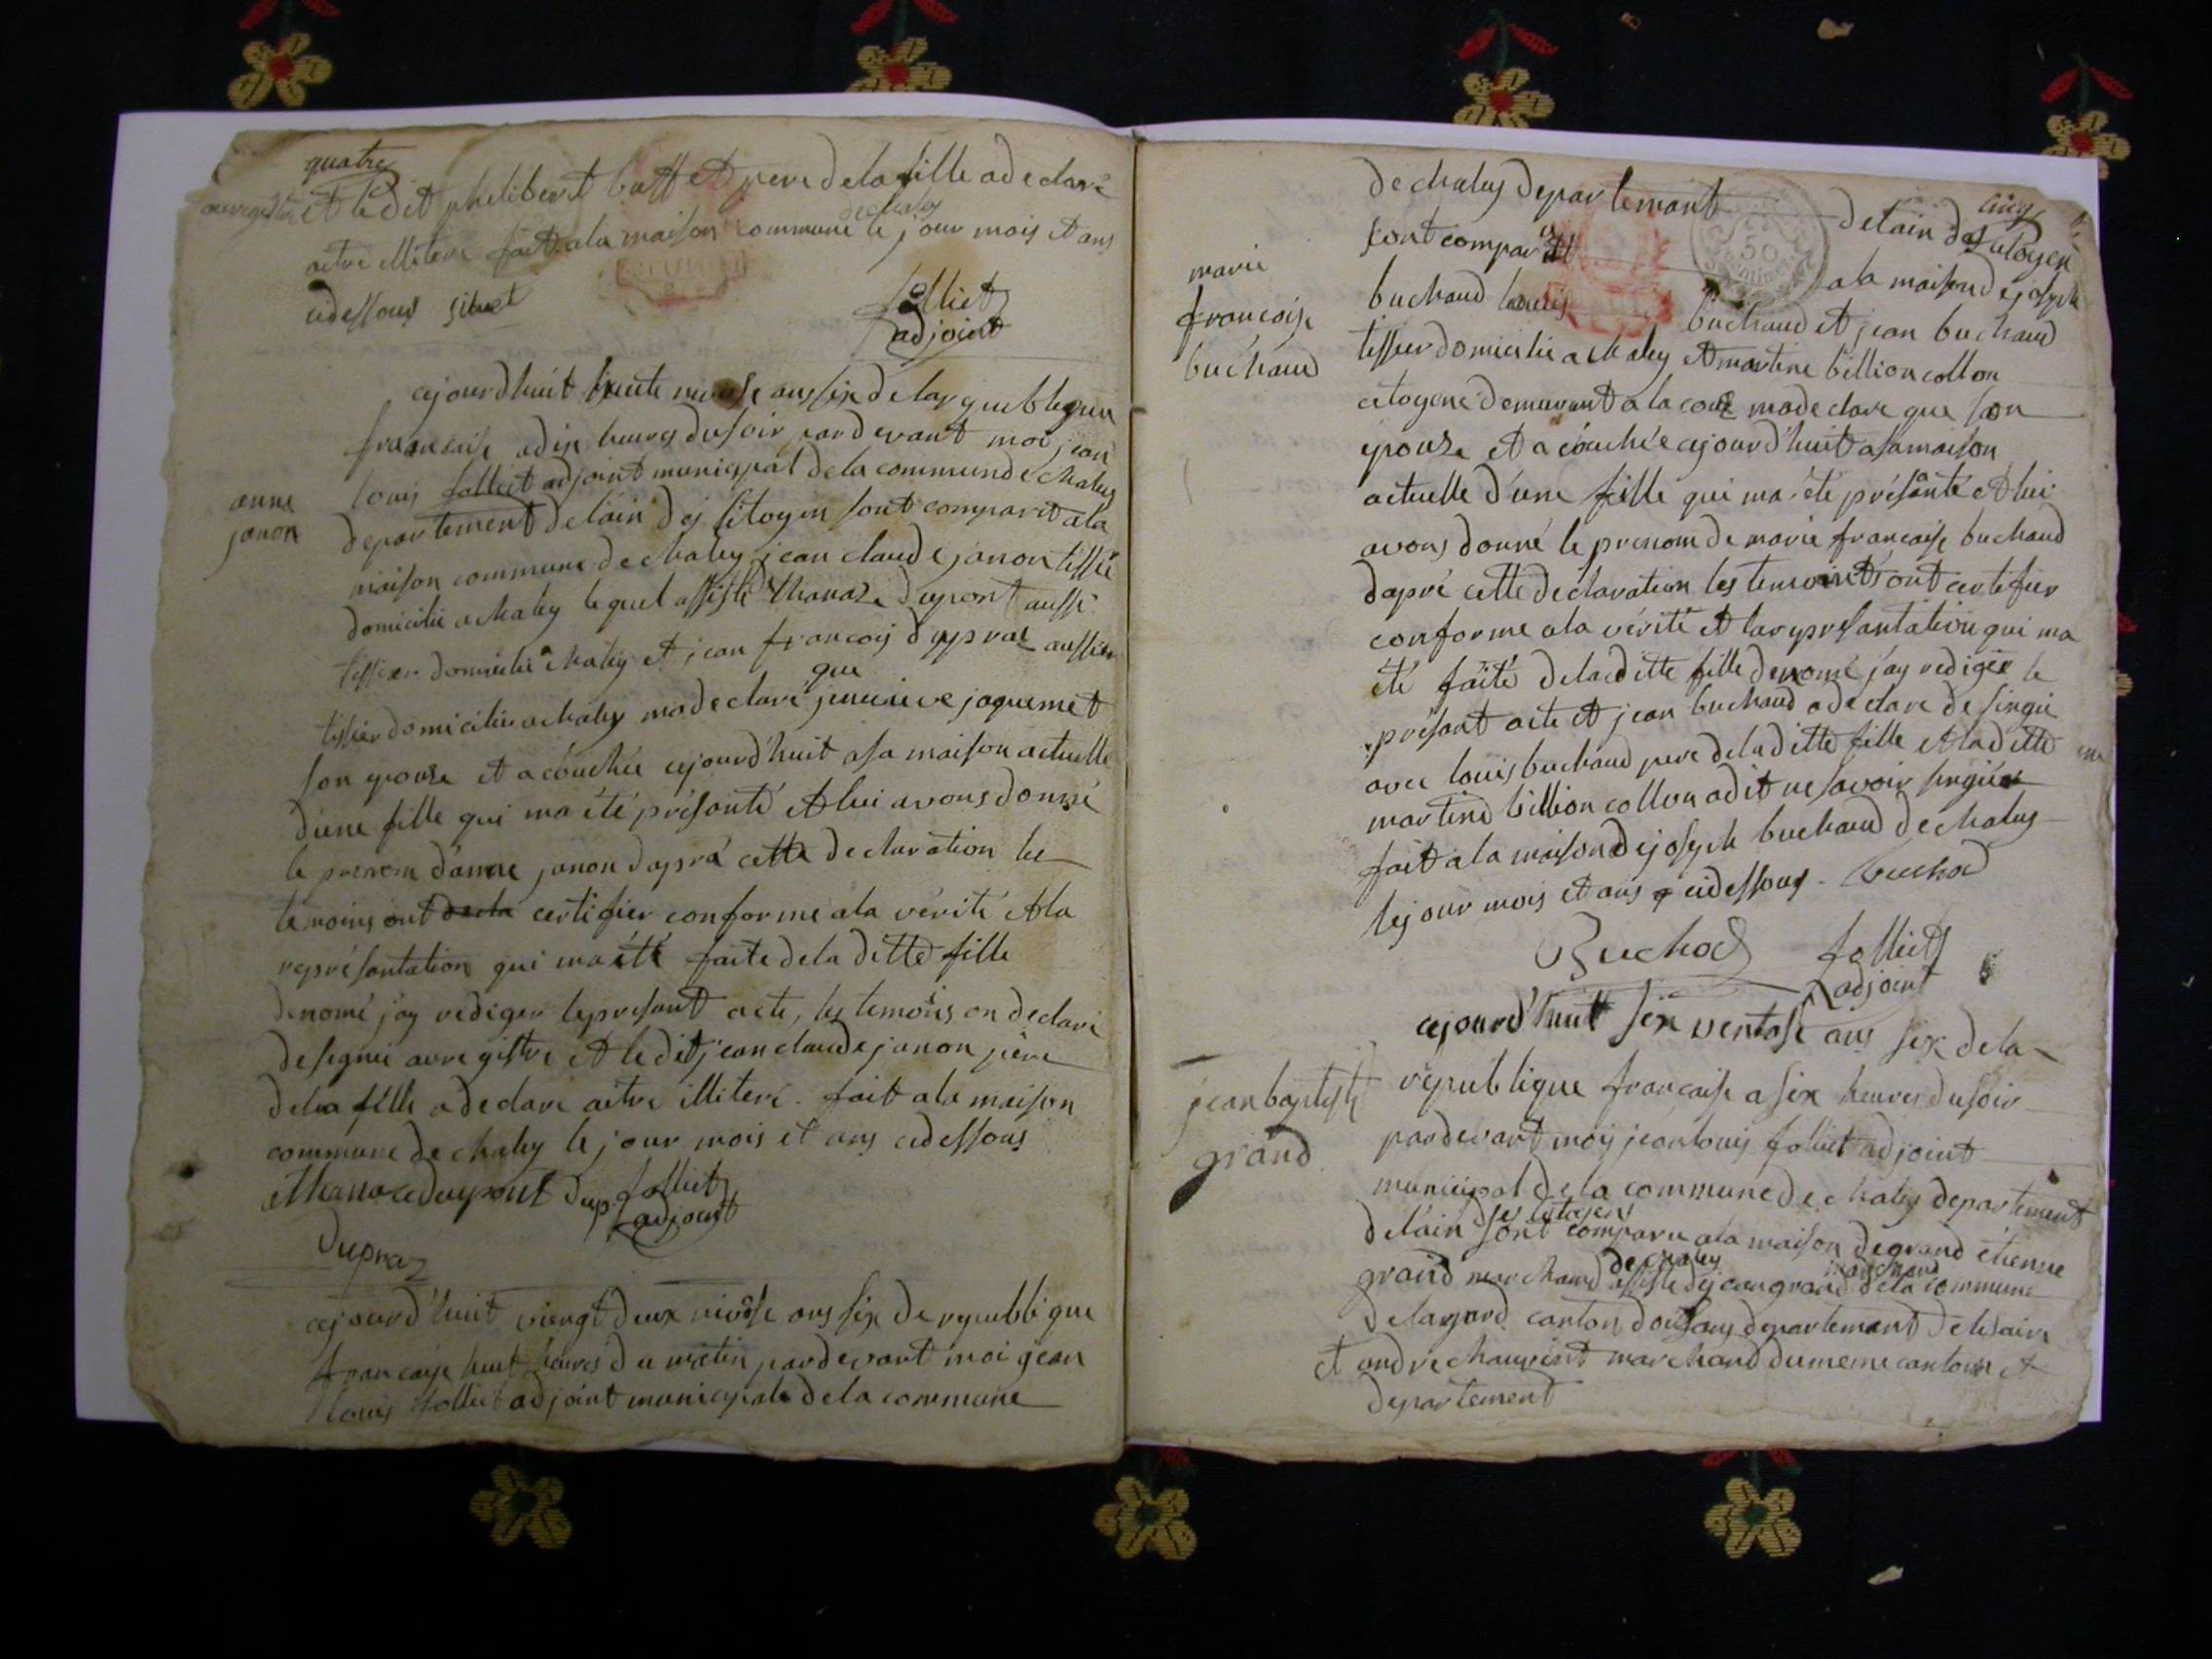 quatre
auregistre et ledit philibert battet pere dela fille a declaré
aitre illiteré fait ala maison commune de chaley le jour mois et ans
cidessous
folliet
adjoint
cejourdhuit trente nivose ans six de la republique
francaise a dix heures du soir pardevant moi jean
anne
janon
louis folliet adjoint municipal dela commune de chaley
departement delain des sitoyen sont comparit ala
maison commune de chaley jean claude janon tissié
domicilié a chaley lequel assisté thanaze dupont aussi
tissier domicilié a chaley et jean francois dupraz aussi
tissier domicilié a chaley ma declaré que jacquemet
son epouse et acouchée cejourd'huit asa maison actuelle
d'une fille qui ma été présanté et lui avons donné
le prenom d'anne janon daprá cette declaration les
temoins ont decla certifier conforme ala vérité et la
représantation qui ma été faite dela ditte fille
denomé jay rediger lepresant acte, les temoins on declaré
designer auregistre et ledit jean claude janon pére
dela fille a declaré aitre illiteré. fait ala maison
commune de chaley le jour mois et ans cidessous
thanaze dupont dup folliet
adjoint
Dupraz
cejourd'huit viengt deux nivôse ans six de republique
francaise huit heures du matin pardevant moi jean
louis folliet adjoint municipale dela commune
cinq
de chaley departemant delain des sitoyen
sont comparut ala maison de joseph
marie
francoise
buchaud
buchaud louis buchaud et jean buchaud
tissier domicilié a chaley et martine billion collon
citoyene demeurant a la ma declare que son
épouse et acouchée cejourd'huit asa maison
actuelle d'une fille qui ma été présanté et lui
avons donné le prenom de marie francaise buchaud
dapré cette declaration les temoints ont certifier
conforme ala vérité et la represantation qui ma
été faite delad itte fille denomé jay redigée le
présant acte et jean buchaud a declare de singié
avec louis buchaud pere delad itte fille et laditte
martine billion collon a dit ne savoir singiér
fait ala maison de joseph buchaud de chaley
lejour mois et ans cidessous. buchod
Buchod folliet
adjoint
cejourd'huit six ventose ans six dela
jean baptiste
grand
république francaise a six heures dusoir
pardevant mois jean louis folliet adjoint
municipal de la commune de chaley departement
delain des citoyens sont comparu ala maison degrand étienne
grand marchand de chaley assisté de jean grand marchand dela commune
delagard canton doisans departemant delisaire
et andre chauvint marchand dumeme cantoin et
departement